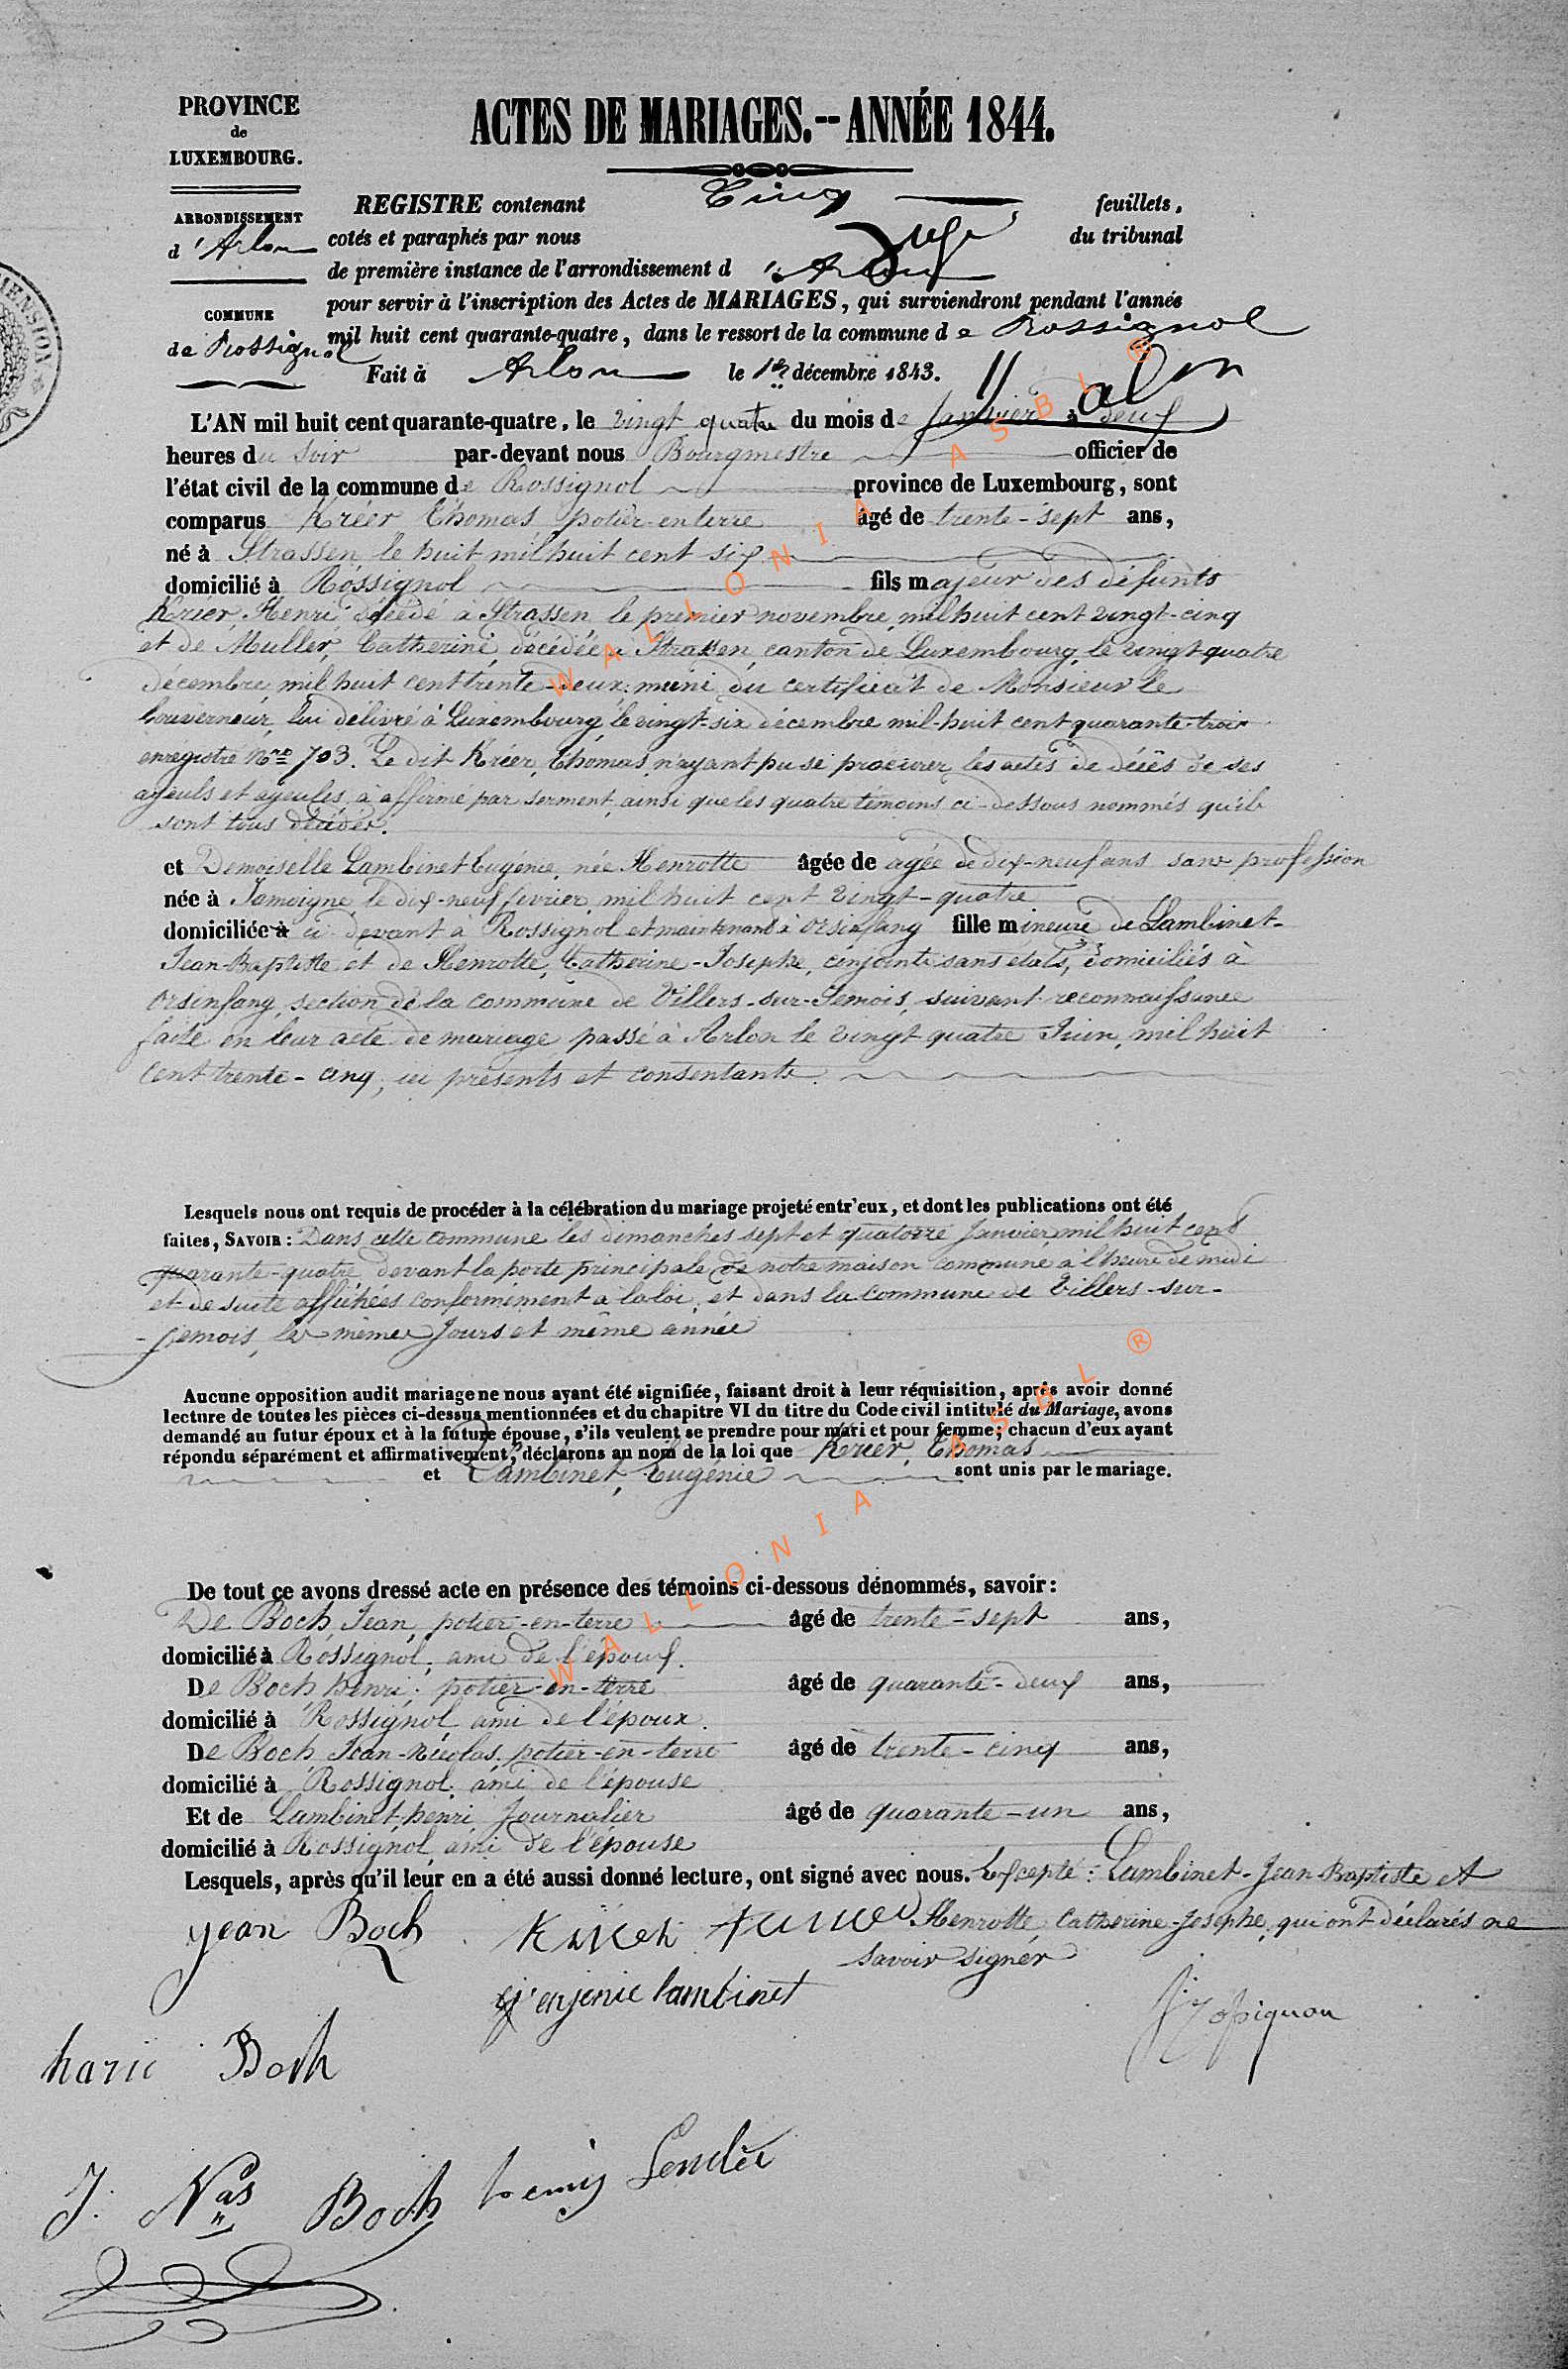 PROVINCE
de
LUXEMBOURG.
ACTES DE MARIAGES.--ANNÉE 1844.
ARRONDISSEMENT
d'Arlon
COMMUNE
de Rossignol
REGISTRE contenant Cinq feuillets,
cotés et paraphés par nous Juge du tribunal
de première instance de l'arrondissement d'Arlon
pour servir à l'inscription des Actes de MARIAGES, qui surviendront pendant l'année
mil huit cent quarante-quatre, dans le ressort de la commune de Rossignol
Fait à Arlon le décembre 1843.
L'AN mil huit cent quarante-quatre, le vingt quatre du mois de Janvier à deux
heures du soir par-devant nous Bourgmestre officier de
l'état civil de la commune de Rossignol province de Luxembourg, sont
comparus Kréer Thomas potier-en-terre âgé de trente-sept ans,
né à Strassen, le huit mil huit cent six
domicilié à Rossignol fils majeur des défunts
Krier, Henri décédé à Strassen le premier novembre, mil huit cent vingt-cinq
et de Muller, Catherine, décédée à Strassen, canton de Luxembourg, le vingt-quatre
décembre, mil huit cent trente-deux; muni du certificat de Monsieur le
Gouverneur, lui délivré à Luxembourg, le vingt-six décembre mil-huit cent quarante-trois
enregistré Nro 703. Le dit Kréer, Thomas, n'ayant pu se procurer les actes de décès de ses
ayeuls et ayeules, a affirmé par serment, ainsi que les quatre témoins ci-dessous nommés qu'ils
sont tous décédés.
et Demoiselle Lambinet Eugénie, née Henrotte âgée de agée de dix-neuf ans sans profession
née à Jamoigne le dix-neuf fevrier, mil huit cent vingt-quatre
domiciliée à ci-devant à Rossignol et maintenant à Orsinfang fille mineure de Lambinet-
Jean-Baptiste et de Henrotte, Catherine-Josephe, conjoints sans états, domiciliés à
Orsinfang, section de la commune de Villers-sur-Semois, suivant reconnaissance
faite en leur acte de mariage passé à Arlon le vingt quatre Juin, mil huit
cent trente-cinq, ici présents et consentants.
Lesquels nous ont requis de procéder à la célébration du mariage projeté entr'eux, et dont les publications ont été
faites, SAVOIR: Dans cette commune les dimanches sept et quatorze Janvier, mil huit cent
quarante-quatre, devant la porte principale de notre maison commune à l'heure de midi
et de suite affichées conformément à la loi, et dans la commune de Villers-sur-
Semois, les mêmes Jours et même année
Aucune opposition audit mariage ne nous ayant été signifiée, faisant droit à leur réquisition, après avoir donné
lecture de toutes les pièces ci-dessus mentionnées et du chapitre VI du titre du Code civil intitulé du Mariage, avons
demandé au futur époux et à la future épouse, s'ils veulent se prendre pour mari et pour femme; chacun d'eux ayant
répondu séparément et affirmativement, déclarons au nom de la loi que Krier, Thomas
et Lambinet, Eugénie sont unis par le mariage.
De tout ce avons dressé acte en présence des témoins ci-dessous dénommés, savoir:
De Boch, Jean, potier-en-terre âgé de trente-sept ans,
domicilié à Rossignol, ami de l'époux.
De Boch henri, potier-en-terre âgé de quarante-deux ans,
domicilié à Rossignol ami de l'époux.
De Boch Jean-Nicolas, potier-en-terre âgé de trente-cinq ans,
domicilié à Rossignol, ami de l'épouse
Et de Lambinet, henri, Journalier âgé de quarante-un ans,
domicilié à Rossignol, ami de l'épouse
Lesquels, après qu'il leur en a été aussi donné lecture, ont signé avec nous. Excepté: Lambinet-Jean-Baptiste et
Henrotte, Catherine-Josephe, qui ont déclarés ne
savoir signer
Jean Boch
lambinet
Boch
J. Nas Boch
WALLONIA ASBL ®
WALLONIA ASBL ®